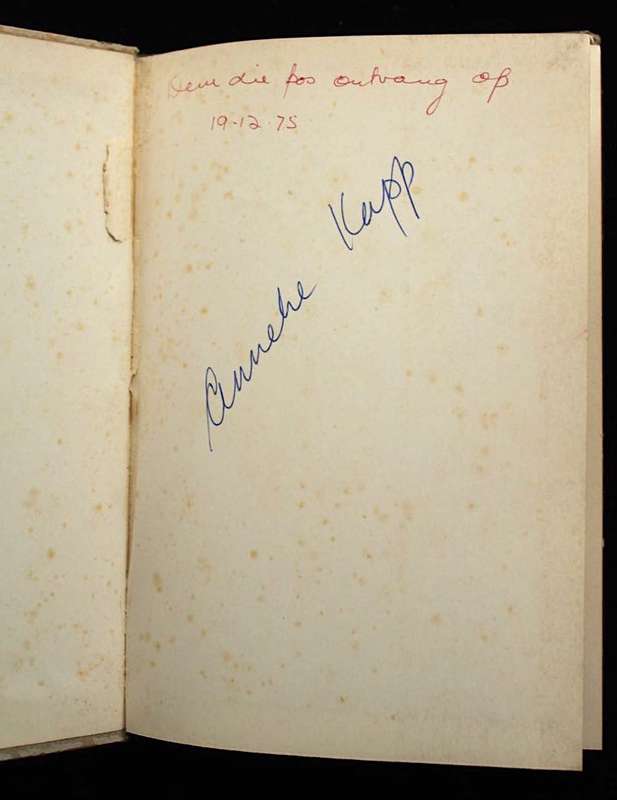 deur die pos ontvang op
19-12-75
Anneke Kapp